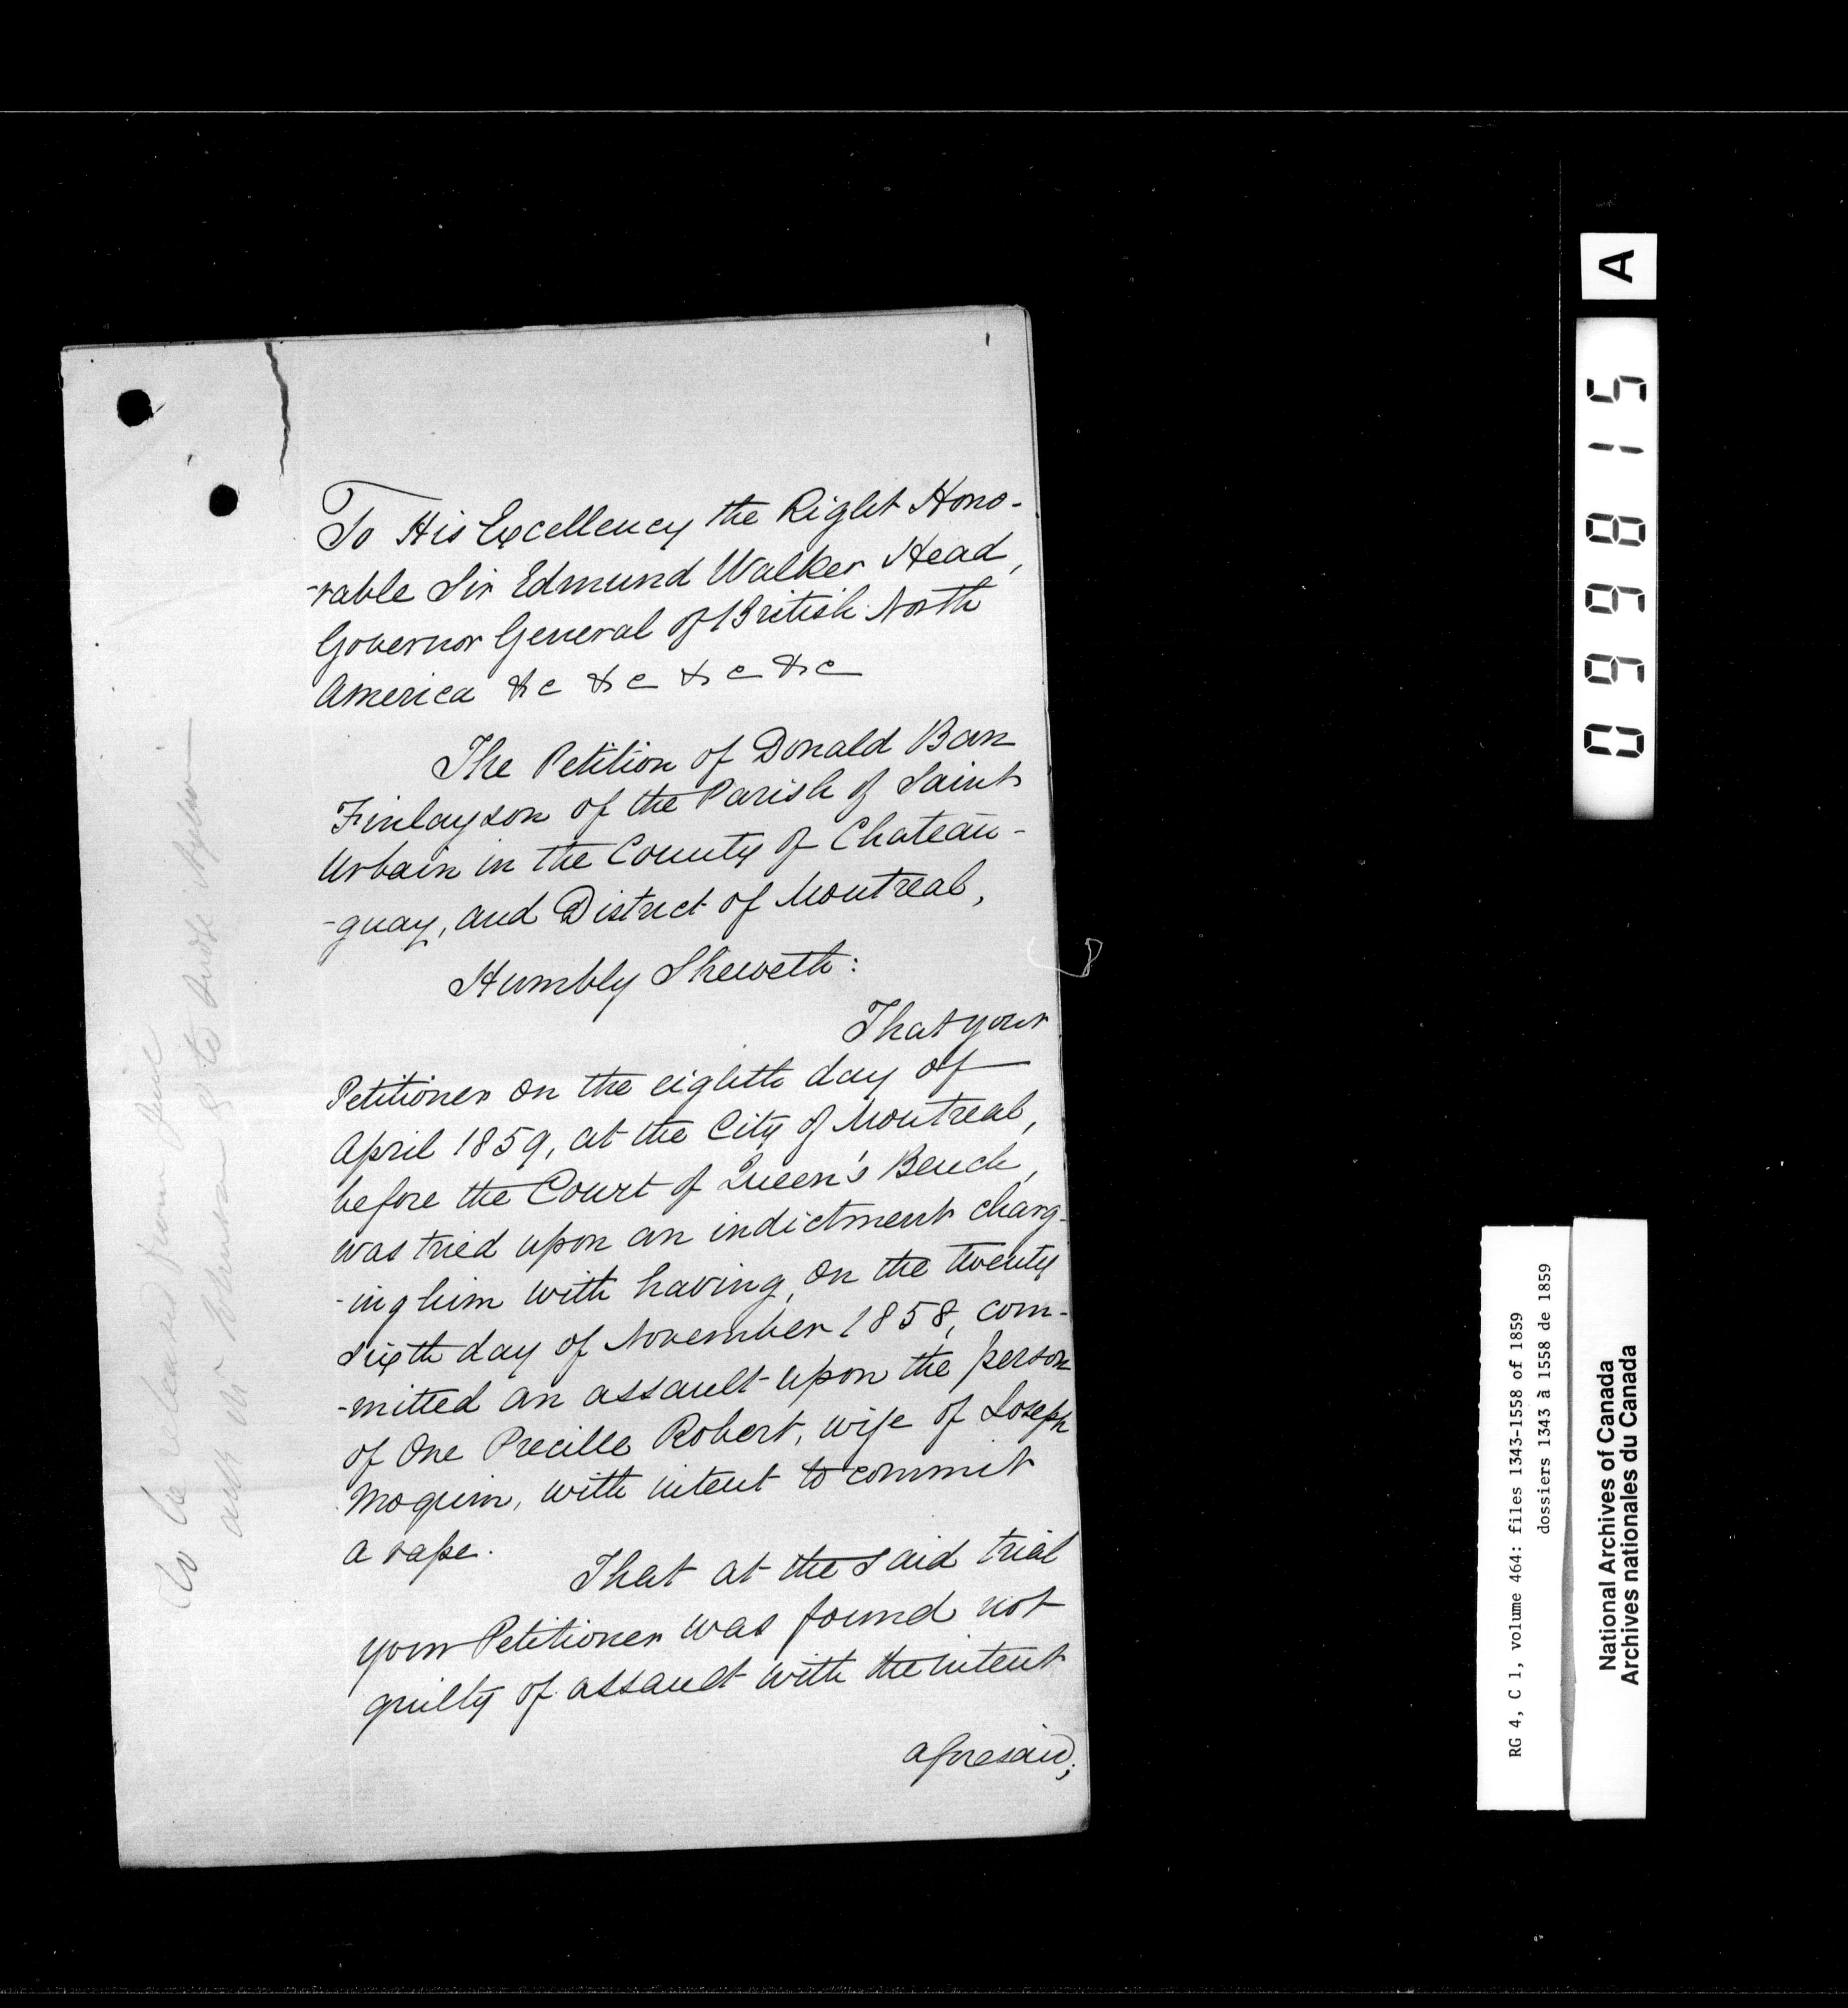 To His Excellency the Right Hono-
-rable Sir Edmund Walker Head,
Governor General of British North
America &c &c &c &c
The Petition of Donald Ban
Finlayson of the Parish of Saint
Urbain in the County of Chateau-
-guay, and District of Montreal,
Humbly Sheweth:
That your
Petitioner on the eighth day of
April 1859, at the City of Montreal,
before the Court of Queen's Bench,
was tried upon an indictment charg-
-ing him with having, on the twenty
sixth day of November 1858, com-
-mitted an assault upon the person
of One Precille Robert, wife of Joseph
Moquin, with intent to commit
a rape.
That at the said trial
your Petitioner was found not
guilty of assault with the intent
aforesaid;
To be released from fine
and
A
099815
RG 4, C 1, volume 464: files 1343-1558 of 1859
dossiers 1343 à 1558 de 1859
National Archives of Canada
Archives nationales du Canada